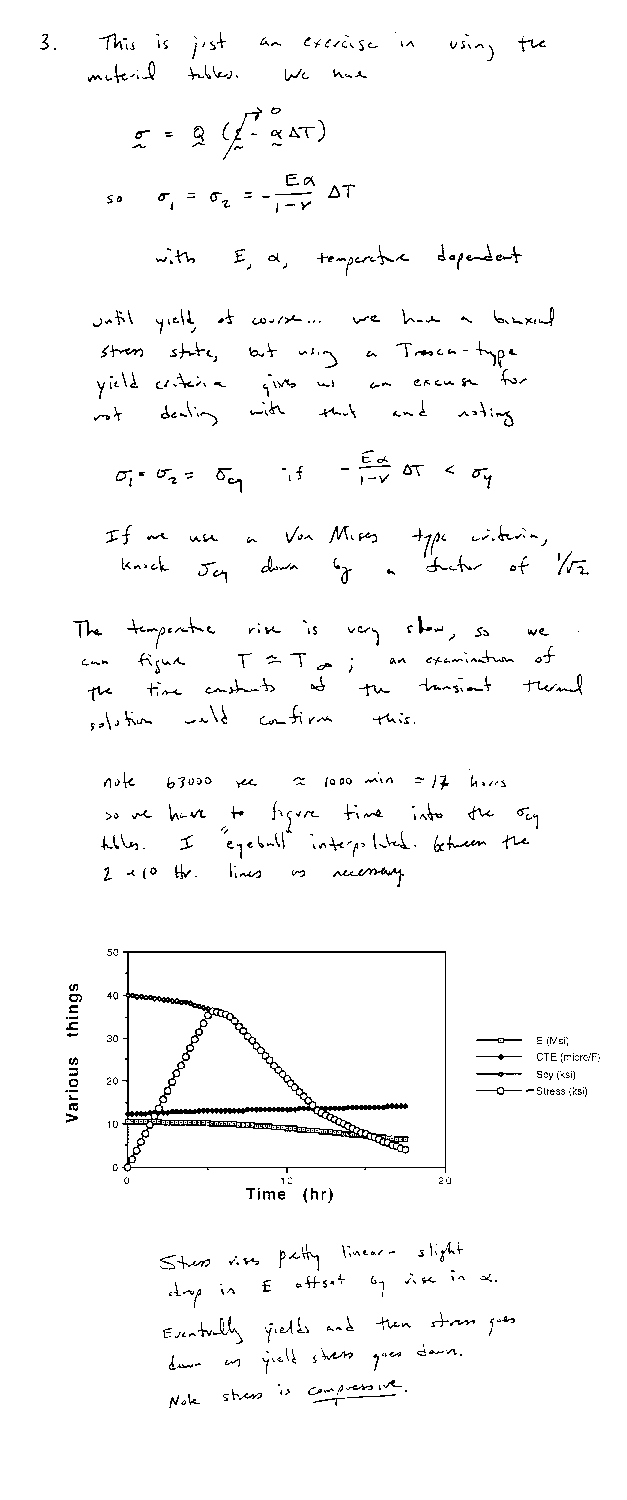 3. This is just an exercise in using the
material tables. We have
σ = Q (ε - α ΔT) → 0
so σ₁ = σ₂ = - Eα/(1-ν) ΔT
with E, α, temperature dependent
until yield, of course... we have a biaxial
stress state, but using a Tresca-type
yield criteria gives us an excuse for
not dealing with that and noting
σ₁ = σ₂ = σcy if - Eα/(1-ν) ΔT < σy
If we use a Von Mises type criteria,
knock σcy down by a factor of 1/√2
The temperature rise is very slow, so we
can figure T ≈ T∞; an examination of
the time constants of the transient thermal
solution would confirm this.
note 63000 sec ≈ 1000 min ≈ 17 hours
so we have to figure time into the σcy
tables. I "eyeball" interpolated between the
2 + 10 Hr. lines as necessary
50
40
30
20
10
0
Various things
0 20
Time (hr)
E (Msi)
CTE (micro/F)
Scy (ksi)
-Stress (ksi)
Stress rises pretty linear - slight
drop in E offset by rise in α.
Eventually yields and then stress goes
down as yield stress goes down.
Note stress is compressive.